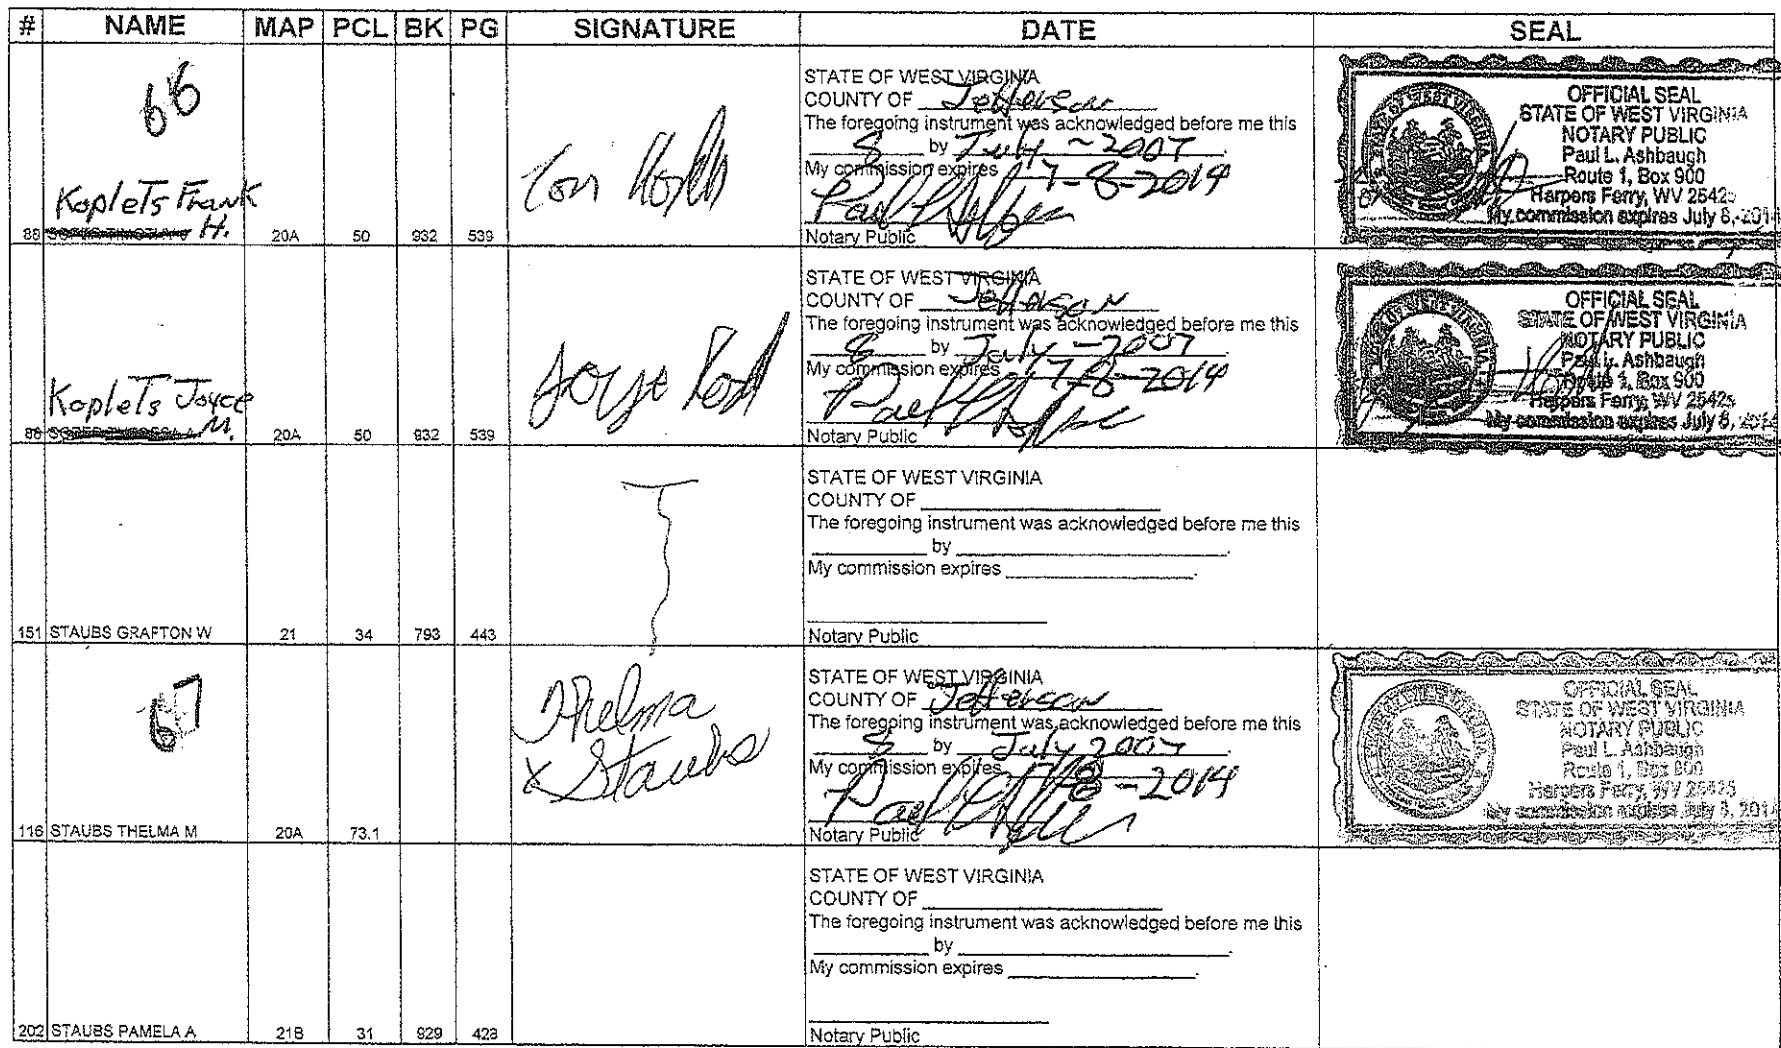 # NAME MAP PCL BK PG SIGNATURE DATE SEAL
66
Koplets Frank
H.
88 20A 50 932 539
STATE OF WEST VIRGINIA
COUNTY OF Jefferson
The foregoing instrument was acknowledged before me this
8 by July ~ 2007
My commission expires 7-8-2014
Notary Public
OFFICIAL SEAL
STATE OF WEST VIRGINIA
NOTARY PUBLIC
Paul L. Ashbaugh
Route 1, Box 900
Harpers Ferry, WV 25425
My commission expires July 8, 2014
Koplets Joyce
M.
88 20A 50 932 539
Joyce
STATE OF WEST VIRGINIA
COUNTY OF Jefferson
The foregoing instrument was acknowledged before me this
8 by July - 2007
My commission expires 7-8-2014
Notary Public
OFFICIAL SEAL
STATE OF WEST VIRGINIA
NOTARY PUBLIC
Paul L. Ashbaugh
Route 1, Box 900
Harpers Ferry, WV 25425
My commission expires July 8, 2014
151 STAUBS GRAFTON W 21 34 793 443
STATE OF WEST VIRGINIA
COUNTY OF
The foregoing instrument was acknowledged before me this
by
My commission expires
Notary Public
67
116 STAUBS THELMA M 20A 73.1
Thelma
x Staubs
STATE OF WEST VIRGINIA
COUNTY OF Jefferson
The foregoing instrument was acknowledged before me this
8 by July 2007
My commission expires 7-8-2014
Notary Public
OFFICIAL SEAL
STATE OF WEST VIRGINIA
NOTARY PUBLIC
Paul L. Ashbaugh
Route 1, Box 900
Harpers Ferry, WV 25425
My commission expires July 8, 2014
202 STAUBS PAMELA A 21B 31 929 428
STATE OF WEST VIRGINIA
COUNTY OF
The foregoing instrument was acknowledged before me this
by
My commission expires
Notary Public